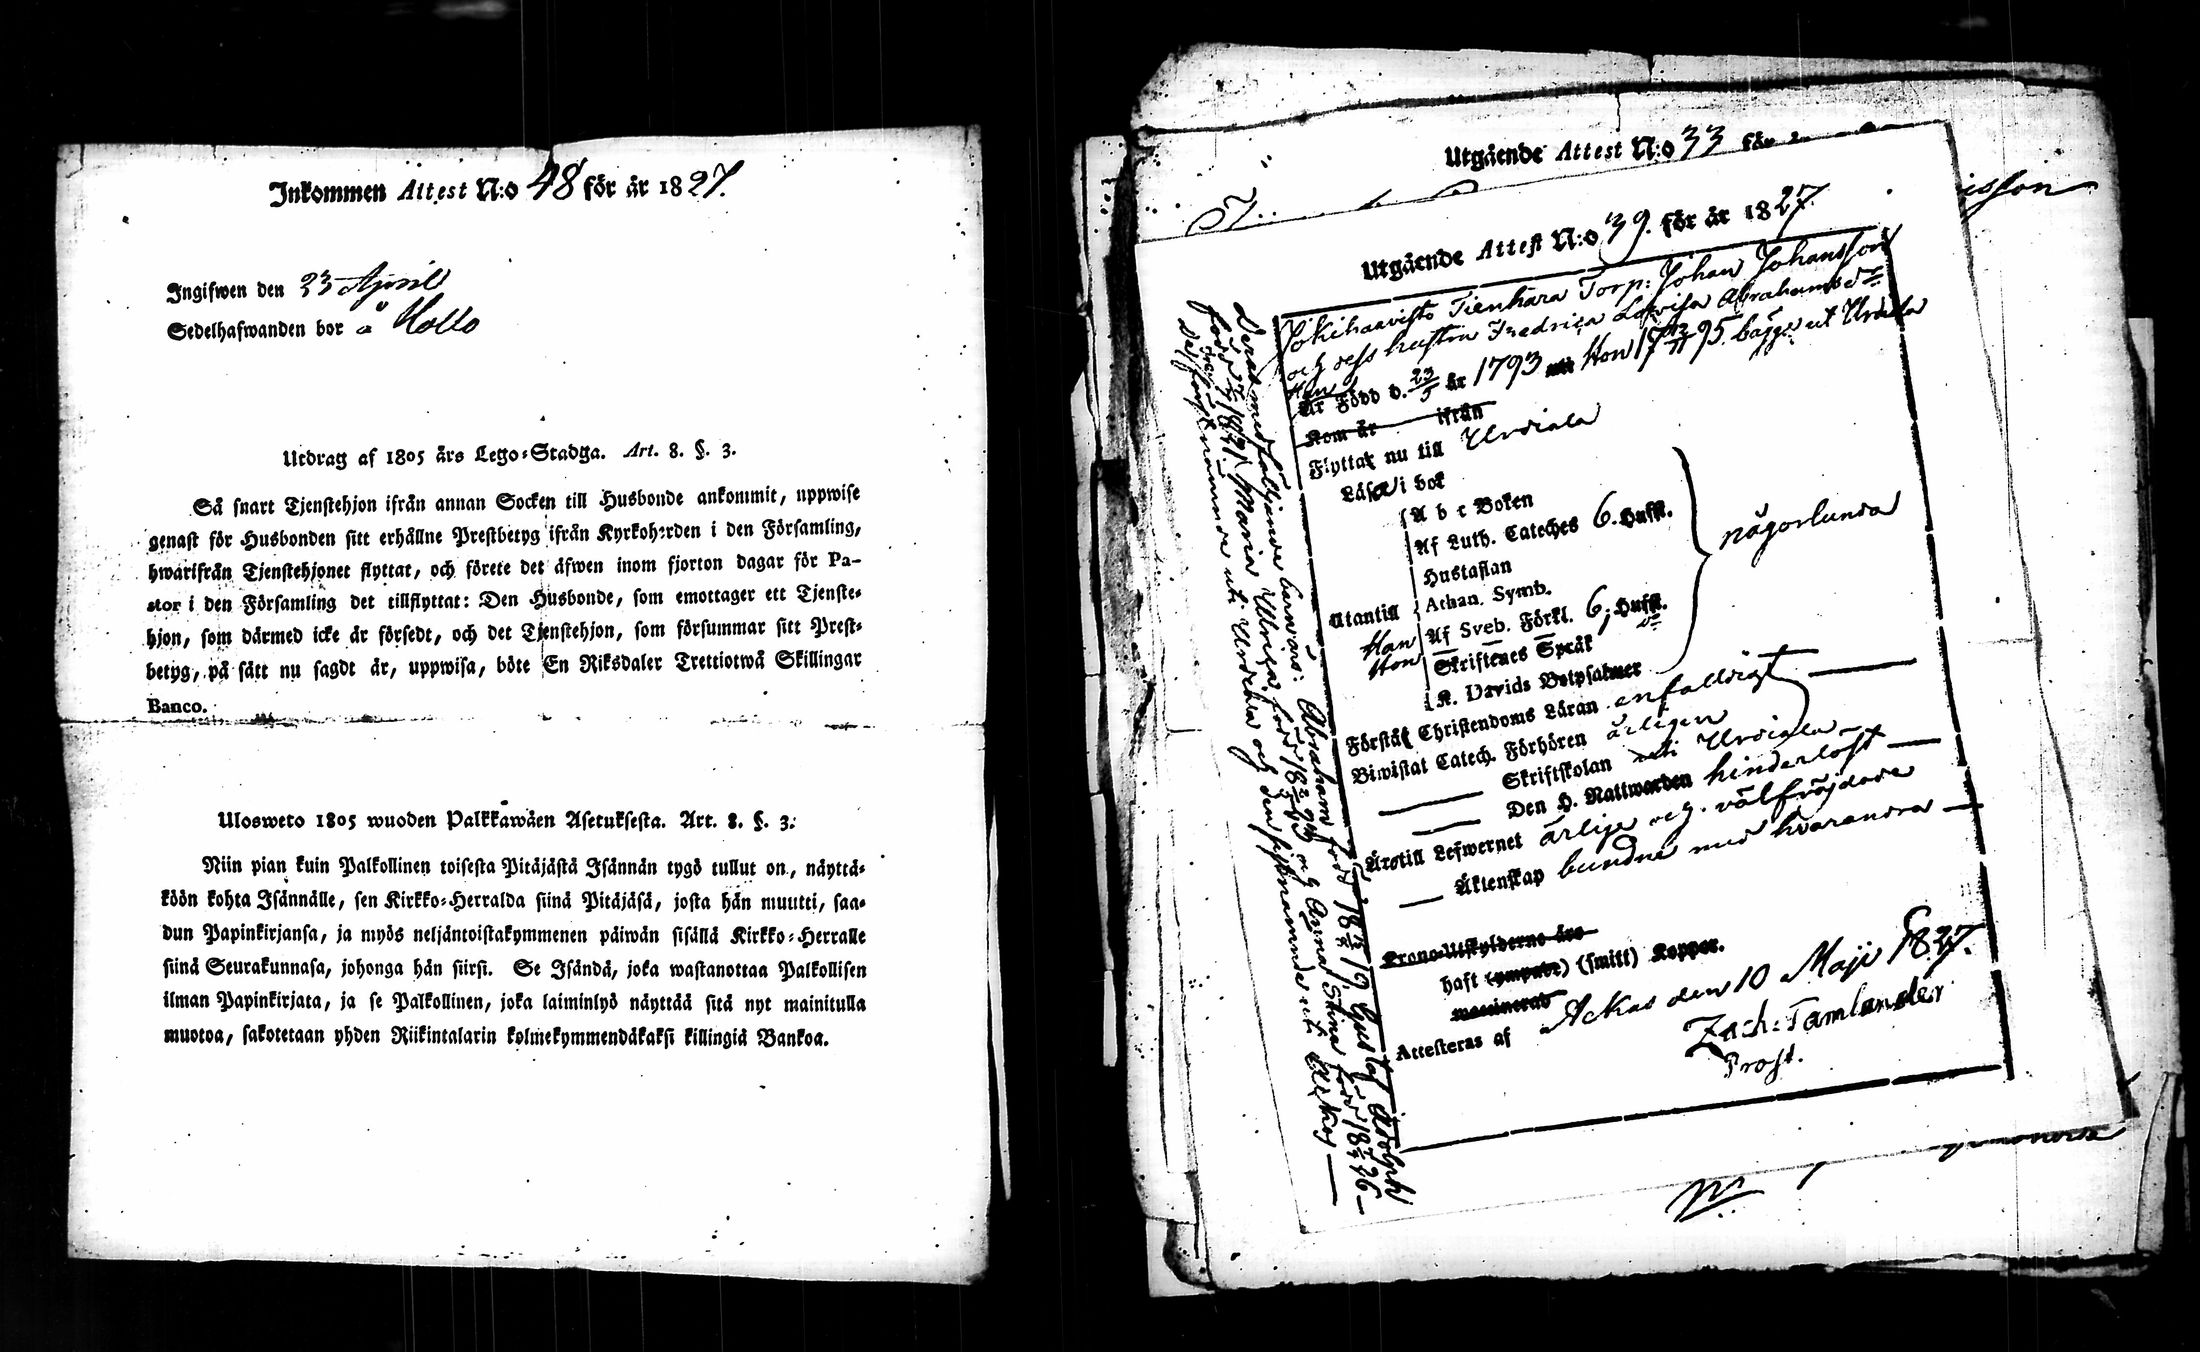 Inkommen Attest N:o 48 för år 1827.
Ingifwen den 23 April
Sedelhafwanden bor å Hollo
Utdrag af 1805 års Lego-Stadga. Art. 8. §. 3.
Så snart Tjenstehjon ifrån annan Socken till Husbonde ankommit, uppwise
genast för Husbonden sitt erhållne Prestbetyg ifrån Kyrkoherden i den Församling,
hwarifrån Tjenstehjonet flyttat, och förete det äfwen inom fjorton dagar för Pa-
stor i den Församling det tillflyttat: Den Husbonde, som emottager ett Tjenste-
hjon, som därmed icke är försedt, och det Tjenstehjon, som försummar sitt Prest-
betyg, på sätt nu sagdt är, uppwisa, böte En Riksdaler Trettiotwå Skillingar
Banco.
Ulosweto 1805 wuoden Palkkawäen Asetuksesta. Art. 8. §. 3:
Niin pian kuin Palkollinen toisesta Pitäjästä Isännän tygö tullut on, näyttä-
köön kohta Isännälle, sen Kirkko-Herralda siinä Pitäjäsä, josta hän muutti, saa-
dun Papinkirjansa, ja myös neljäntoistakymmenen päiwän sisällä Kirkko-Herralle
siinä Seurakunnasa, johonga hän siirsi. Se Isändä, joka wastanottaa Palkollisen
ilman Papinkirjata, ja se Palkollinen, joka laiminlyö näyttää sitä nyt mainitulla
muotoa, sakotetaan yhden Riikintalarin kolmekymmendäkaksi killingiä Bankoa.
Utgående Attest N:o 33 för
Utgående Attest N:o 39. för år 1827.
Jokihaavisto Tienhara Torp: Johan Johansson
och dess hustru Fredrica Lovisa Abrahamsdr
Han
Är Född d. 23/5 år 1793 Hon 17 95. bägge ut Urdiala
Kom år ifrån
Flyttar nu till Urdiala
Läsa i bok
A b c Boken
Af Luth. Cateches 6. Hufst.
Hustaflan
Athan. Symb.
Utantill
Han Af Sveb. Förkl. 6, Hufst.
Hon Skriftenes Språk
K. Davids Botpsalmer
någorlunda
Förstå Christendoms Läran enfalldigt
Biwistat Catech. Förhören årligen
Skriftskolan uti Urdiala
Den H. Nattwarden hinderlöst
Äro till Lefwernet ärlige och välfrägdade
Äktenskap bundne med hvarandra
Krono-Utskylderne års
haft (ympade) (smitt) Koppor.
Attesteras af Ackas den 10 Maji 1827.
Zach: Tamlander
Prost.
Deras medföljande barn äro: Abraham född 18 19, Gustaf Adolph
född 1821, Maria Ulrica född 18 och Anna Stina född 18 26
de förstnämnde uti Urdiala och den sistnämnde uti Ackas